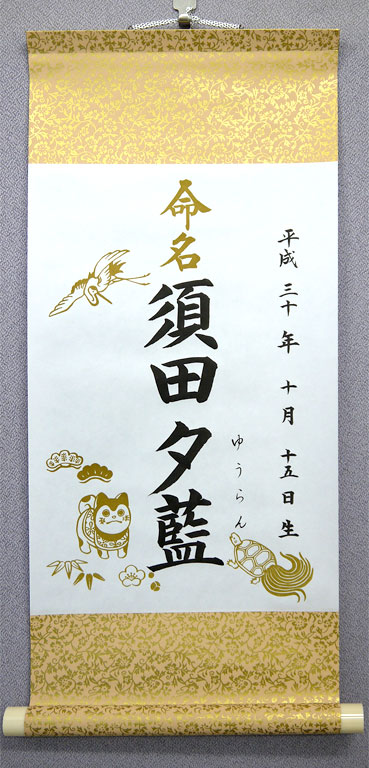 平成三十年十月十五日生
命名須田夕藍
ゆうらん